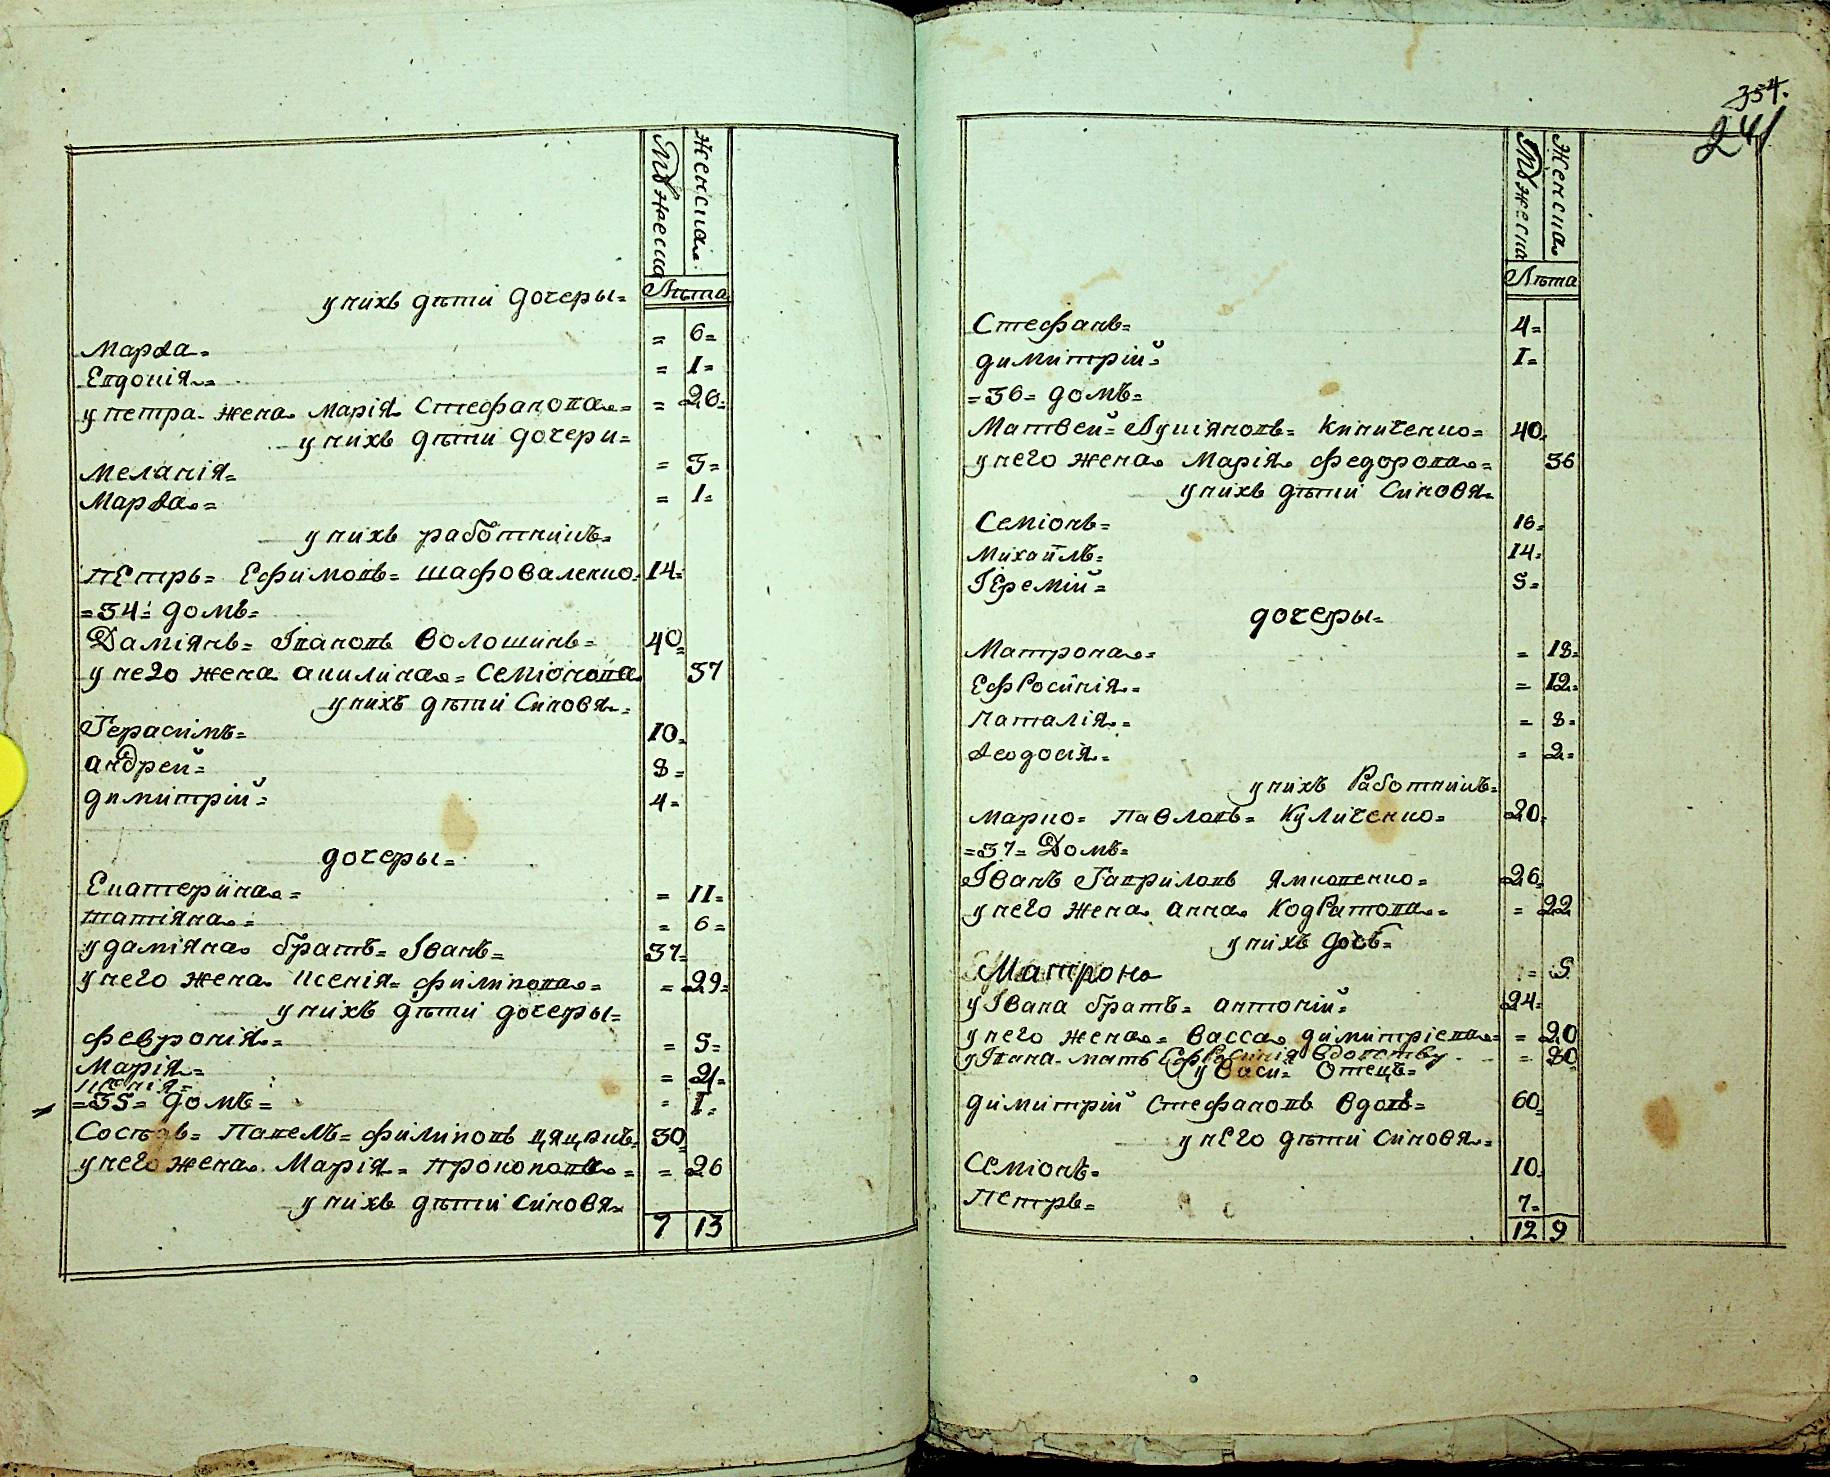 Мужеска Женска
Лѣта
у нихъ дѣти дочеры=
Марѳа= = 6=
Евдокія= = 1=
у петра жена Марія Стефанова= = 26=
у нихъ дѣти дочери=
Меланія= = 3=
Марѳа= = 1=
у нихъ работникъ=
пЕтръ= Ефимовъ= шафоваленко= 14=
=34= домъ=
Даміянъ= Івановъ Волошинъ= 40=
у него жена акилина= Семіонова 37
у нихъ дѣти Синовя=
Герасимъ= 10=
андрей= 8=
димитрій= 4=
дочеры=
Екатерина= = 11=
татіяна= = 6=
у даміяна братъ= Іванъ= 37=
у него жена Ксенія= филипова= = 29=
у нихъ дѣти дочеры=
февронія= = 5=
Марія= = 2=
Ксенія= = 1=
=35= домъ=
Павелъ= филиповъ 30
у него жена Марія= прокопова= = 26
у нихъ дѣти Синовя=
7 13
354.
241
Мужеска Женска
Лѣта
Стефанъ= 4=
димитрій= 1=
=36= домъ=
Матвей= Лукіяновъ= Кириченко= 40=
у него жена Марія федорова= 36
у нихъ дѣти Синовя=
Семіонъ= 16=
михаилъ= 14=
ІЕремій= 5=
дочеры=
Матрона= = 18=
ЕфРосинія= = 12=
наталія= = 8=
ѳеодосія= = 2=
у нихъ Работникъ=
марко= павловъ= Куличенко= 20=
=37= Домъ=
Іванъ Гавриловъ Ямковенко= 26=
у него жена анна КодРатова= = 22
у нихъ дочь=
Матрона = 5
у Івана братъ= антоній= 24=
у него жена= Васса димитріева= = 20
у Івана мать ЕфРосинія вдовству = 80
у Васи= Отецъ=
димитрій Стефановъ Вдовъ= 60=
у нЕго дѣти Синовя=
Семіонъ= 10=
Петръ= 7=
12 9